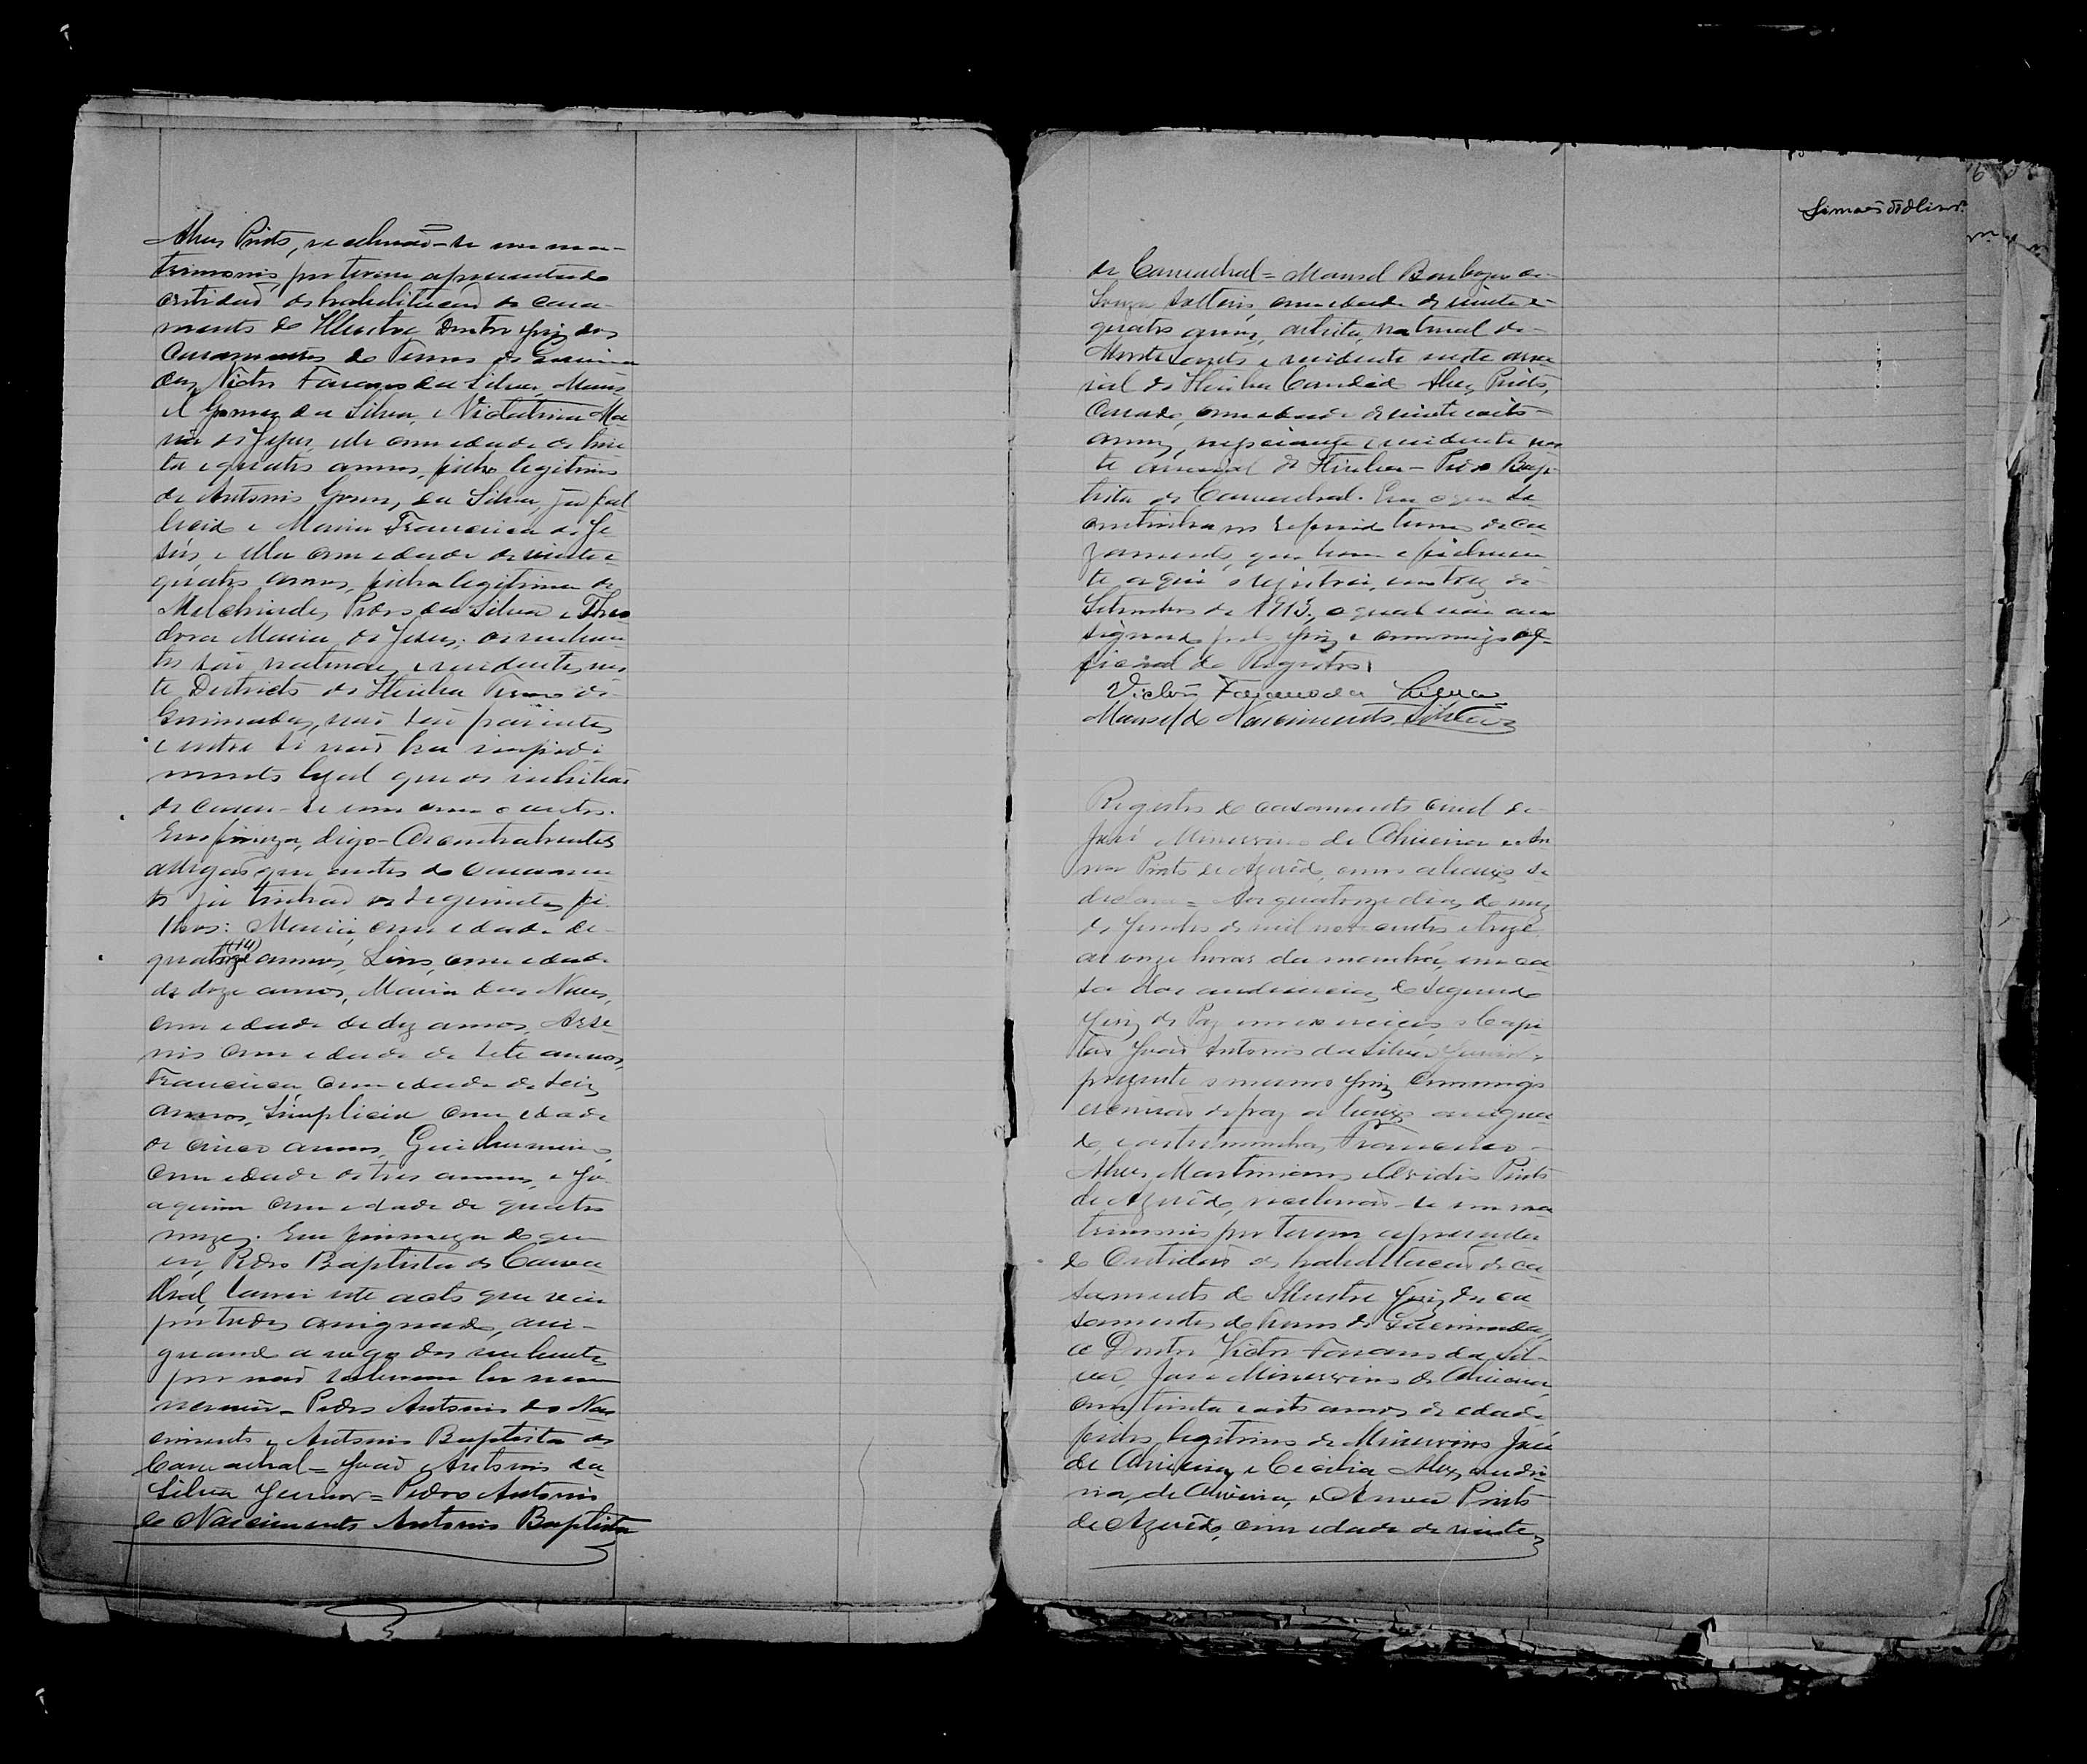 Alves Pinto, receberão-se em ma-
trimonio, por terem apresentado
certidão de habilitação de casa-
mento do Illustre Doutor Juiz dos
Casamentos do Termo de
Victor da Silva, Mano-
el Gomes da Silva, e Victalina Ma-
ria de Jesus, elle com edade de trin-
ta e quatro annos, filho legitimo
de Antonio Gomes da Silva, já fal-
lecido e Maria Francisca de Je-
sus, e ella com edade de vinte e
quatro annos, filha legitima de
Melchiades Pedro da Silva e Theo-
dora Maria de Jesus; os nuben-
tes são naturaes e residentes nes-
te Districto de Termo de
não são parentes
e entre si não ha impedi-
mento legal que os inhiba
de casar-se um com o outro.
Em firmeza, digo-Os contrahentes
que antes do casamen-
to já tinhão os seguintes fi-
lhos: Maria, com edade de
quatorze (14) annos, Lino, com edade
de doze annos, Maria das Neves,
com edade de dez annos, Arse-
nio com edade de sete annos,
Francisca com edade de seis
annos, Simplicio com edade
de cinco annos, Guilhermino,
com edade de tres annos, e Jo-
aquim com edade de quatro
mezes. Em firmeza do que
eu, Pedro Baptista do
lavrei este acto que vai
por todos assignado, assi-
gnando a rogo dos nubentes
por não saberem ler nem
escrever- Pedro Antonio do Nas-
cimento e Antonio Baptista do
= João Antonio da
Silva Junior = Pedro Antonio
do Nascimento Antonio Baptista
de = Manoel de
Souza com edade de vinte e
quatro annos, artista, natural de
Monte Santo e residente neste arra-
ial de Candido Alves Pinto,
casado, com edade de vinte e oito
annos, negociante e residente nes-
te arraial de - Pedro Bap-
tista do Era o que se
continha no referido termo de ca-
zamento, que bem e fielmen-
te aqui registrei, em trez de
Setembro de 1913, o qual vai as-
signado pelo Juiz e commigo of-
ficial do Registro.
Victor da
Manoel do Nascimento
Registro do casamento civil de
José Minervino de Oliveira e An-
na Pinto de Azevêdo, como abaixo se
declara= Aos quatorze dias do mez
de Junho de mil novecentos e treze
as onze horas da manhã, em ca-
sa das audiencias do segundo
Juiz de Paz em exercicio, o Capi-
tão João Antonio da Silva Junior,
prezente o mesmo Juiz commigo
escrivão de paz abaixo assigna-
do, e as testemunhas, Francisco
Alves Martiniano e Ovidio Pinto
de Azevêdo, receberão-se em ma-
trimonio por terem apresenta-
do Certidão de habilitação de ca-
samento do Illustre Juiz de ca-
samentos do termo de
o Doutor Victor da Sil-
va, José Minervino de Oliveira,
com trinta e oito annos de edade
filho legitimo de Minervino José
de Oliveira, e Cecilia Alexandri-
na de Oliveira, e Anna Pinto
de Azevêdo, com edade de vinte